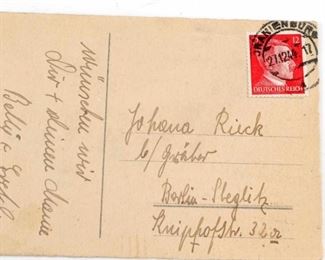 wünschen wir
Dir + deinen
ORANIENBURG
12
DEUTSCHES REICH
Johana Rieck
b/ Gräber
Berlin-Steglitz
Kniphofstr. 32